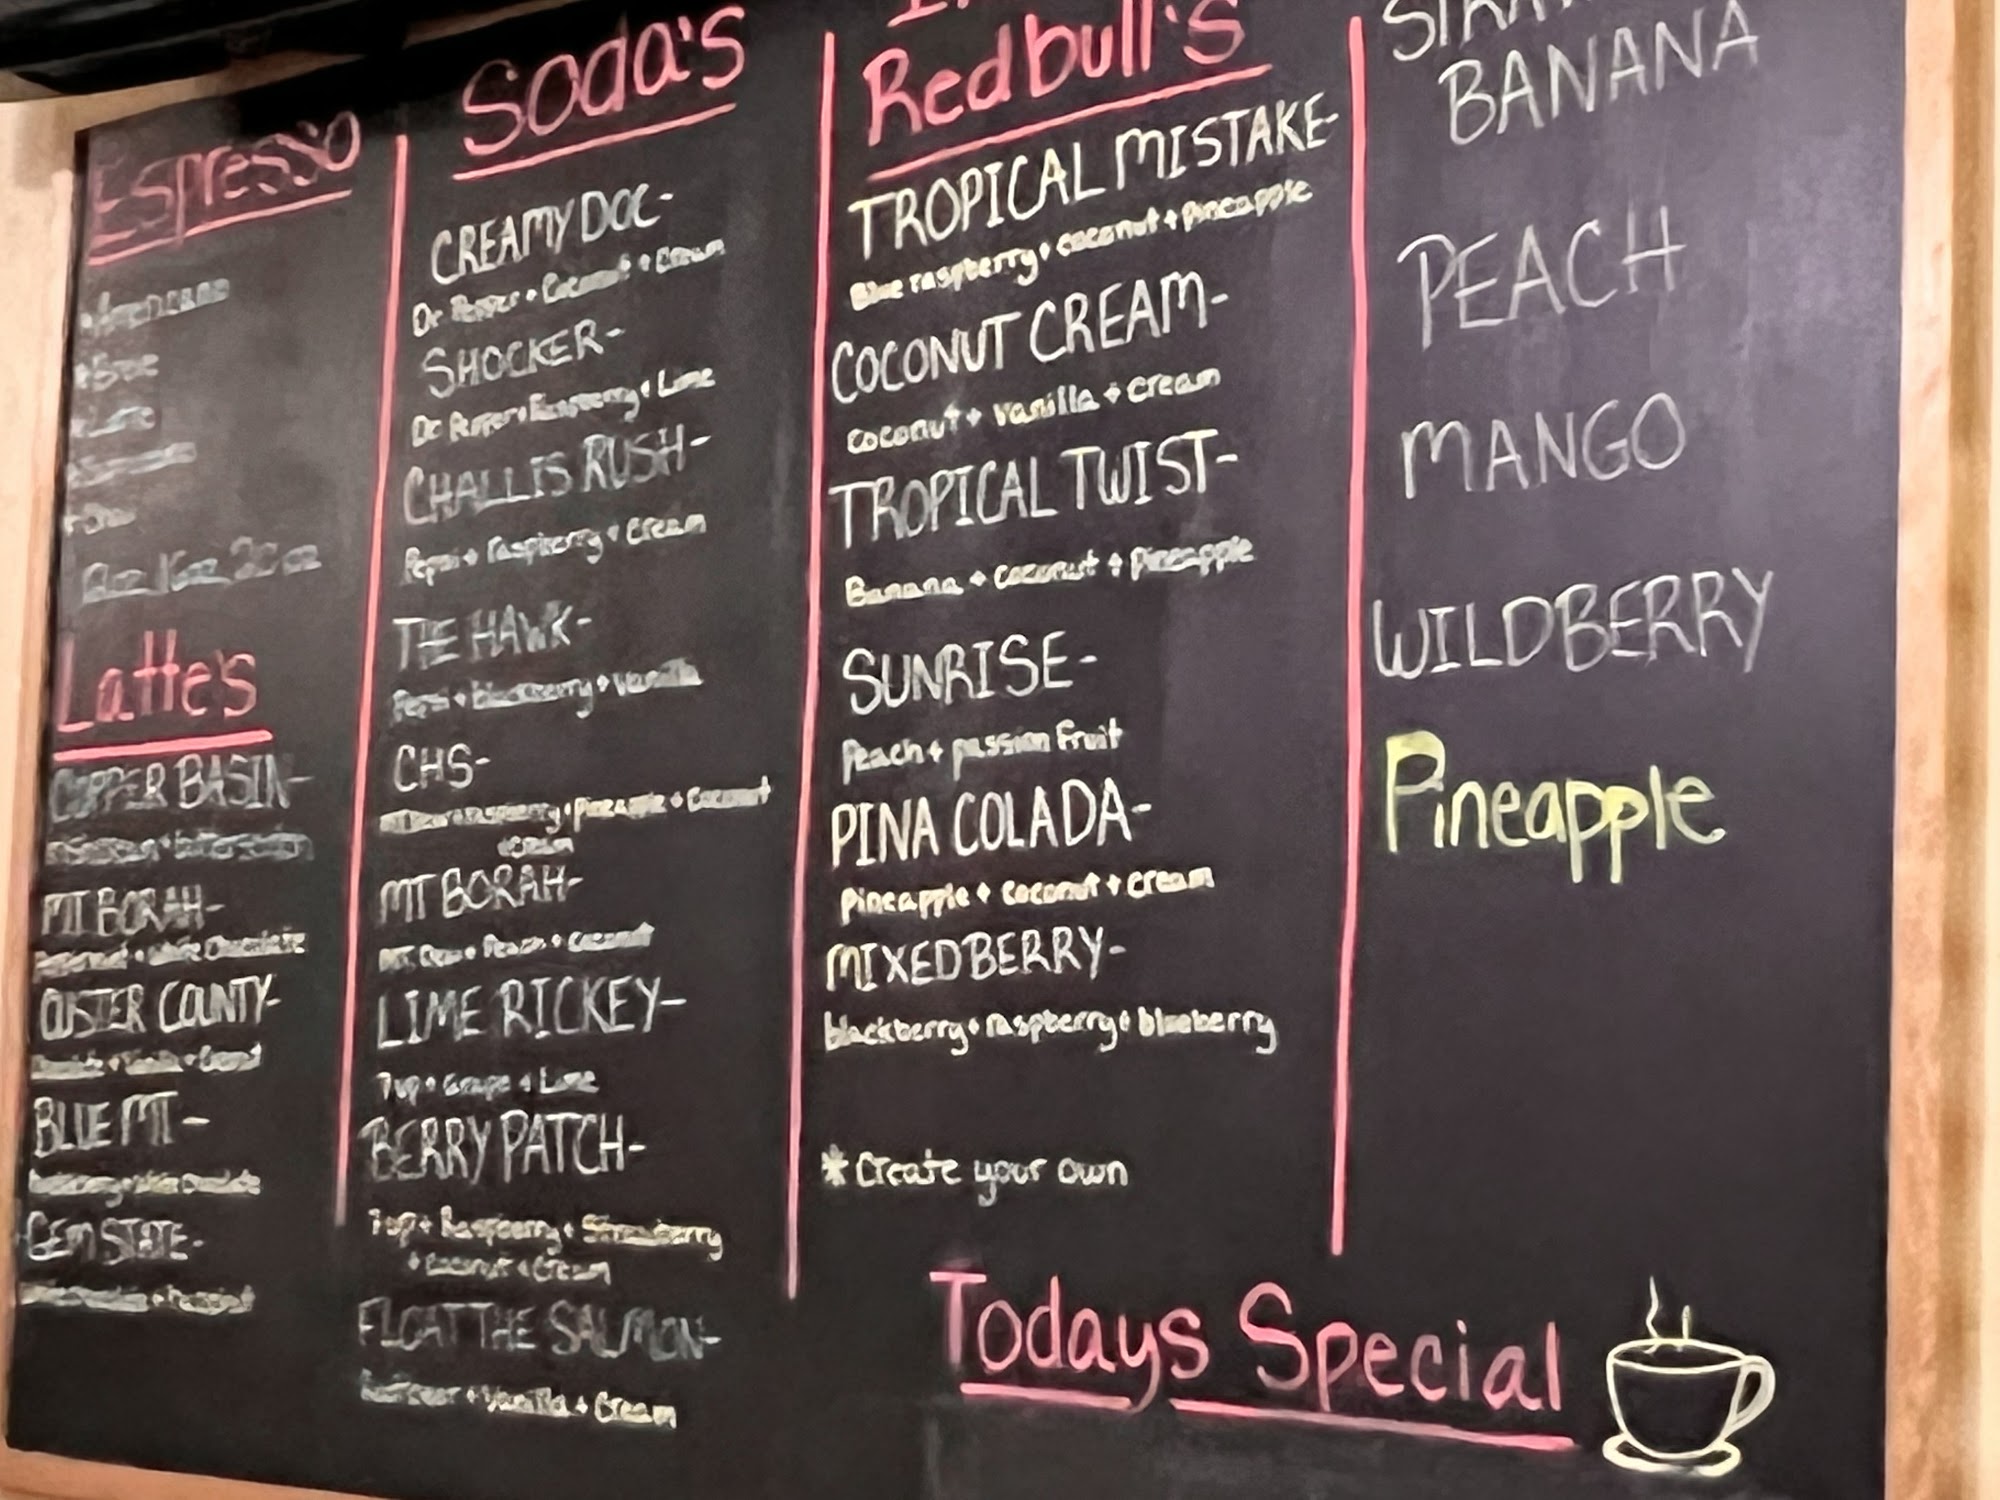 Espresso
Americano
Latte
12oz 16oz 20oz
Latte's
COPPER BASIN-
MT BORAH-
+ white chocolate
CUSTER COUNTY-
BLUE MT-
GEM STATE-
Soda's
CREAMY DOC-
Dr. Pepper + Coconut + Cream
SHOCKER-
Dr. Pepper + Raspberry + Lime
CHALLIS RUSH-
Pepsi + raspberry + cream
THE HAWK-
Pepsi + blackberry + vanilla
CHS-
+ pineapple + coconut
+ cream
MT BORAH-
MT. Dew + Peach + coconut
LIME RICKEY-
7up + Grape + Lime
BERRY PATCH-
7up + Raspberry + Strawberry
+ coconut + cream
FLOAT THE SALMON-
+ vanilla + cream
Redbull's
TROPICAL MISTAKE-
Blue raspberry + coconut + pineapple
COCONUT CREAM-
coconut + vanilla + cream
TROPICAL TWIST-
Banana + coconut + pineapple
SUNRISE-
Peach + passion fruit
PINA COLADA-
Pineapple + coconut + cream
MIXED BERRY-
blackberry + raspberry + blueberry
* Create your own
BANANA
PEACH
MANGO
WILDBERRY
Pineapple
Todays Special